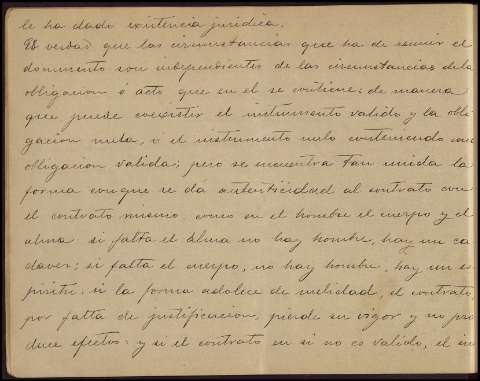 le ha dado existencia juridica.
Es verdad que las circunstancias que ha de reunir el
documento son independientes de las circunstancias de la
obligacion ó acto que en el se contiene; de manera
que puede coexistir el instrumento valido y la obli
gacion nula, ó el instrumento nulo conteniendo una
obligacion valida; pero se encuentra tan unida la
forma con que se dá autenticidad al contrato con
el contrato mismo, como en el hombre el cuerpo y el
alma: si falta el alma no hay hombre, hay un ca
daver; si falta el cuerpo, no hay hombre, hay un es
píritu: si la forma adolece de nulidad, el contrato,
por falta de justificacion, pierde su vigor y no pro
duce efectos: y si el contrato en si no es valido, el ins